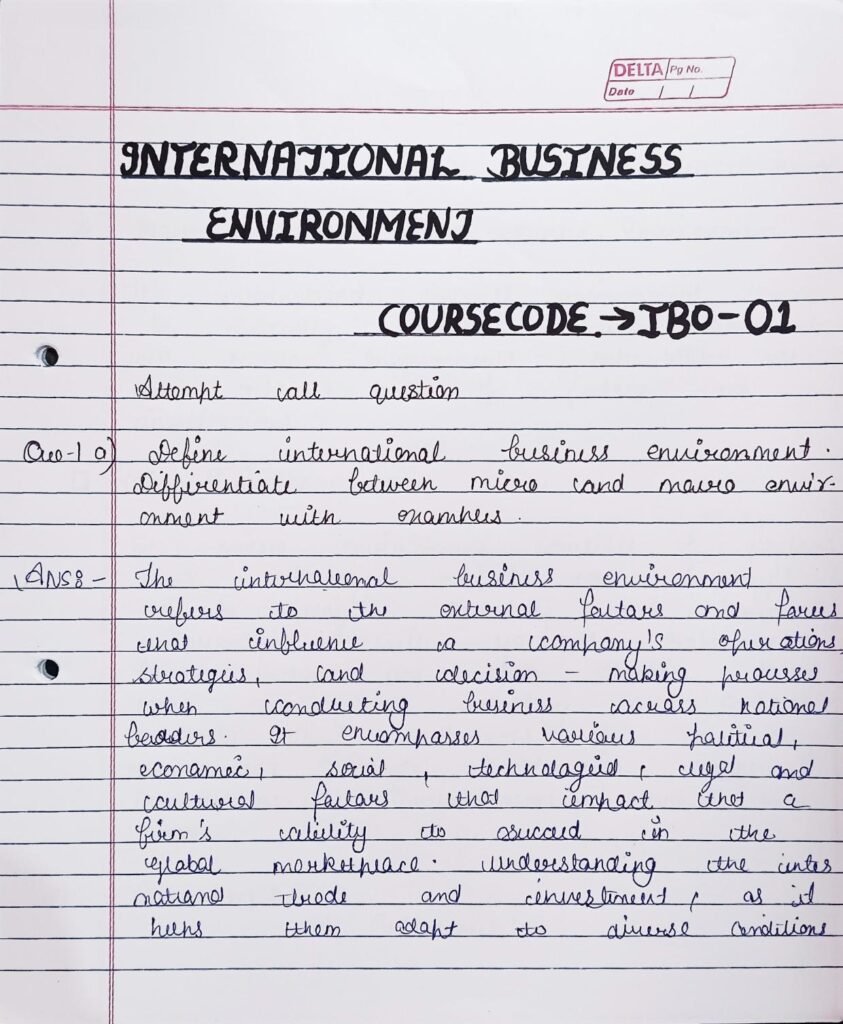 DELTA Pg No.
Date / /
INTERNATIONAL BUSINESS
ENVIRONMENT
COURSECODE → IBO-01
Attempt all question
Que-1 a) Define international business environment.
Diffirentiate between micro and macro envir-
onment with examples.
Ans:- The international business environment
refers to the external factors and forces
that influence a company's operations,
strategies, and decision - making processes
when conducting business across national
borders. It encompasses various political,
economic, social, technological, legal and
cultural factors that impact that a
firm's ability to succeed in the
global marketplace. Understanding the inter
national trade and investment, as it
helps them adapt to diverse conditions